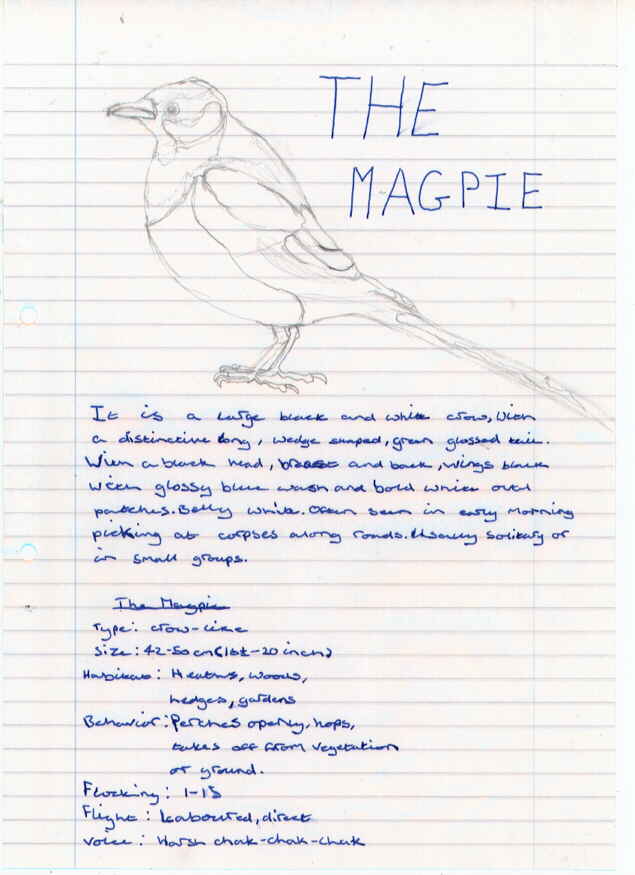 THE
MAGPIE
It is a large black and white crow, With
a distinctive long, wedge shaped, green glossed tail.
With a black head, breast and back, wings black
with glossy blue wash and bold white oval
patches. Belly white. Often seen in early morning
picking at corpses along roads. Usually solitary or
in small groups.
The Magpie
Type: crow-like
Size: 42-50cm (16½-20 inch)
Habitat: Heaths, woods,
hedges, gardens
Behavior: Perches openly, hops,
takes off from vegetation
or ground.
Flocking: 1-15
Flight: Laboured, direct
Voice: Harsh chak-chak-chak